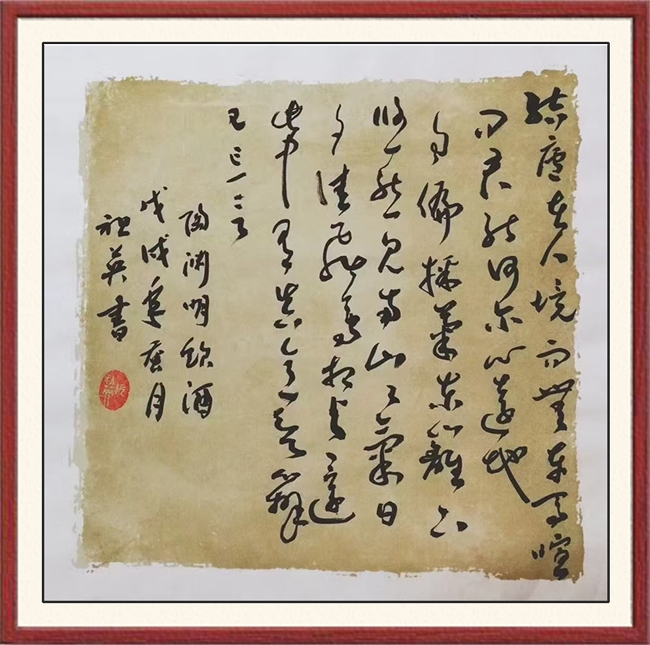 結廬在人境而無車馬喧
问君能何尔心遠地
自偏採菊東籬下
悠然見南山山氣日
夕佳飛鳥相與還
此中有真意欲辨
已忘言
陶渊明飲酒
戊戌年月
祖英書